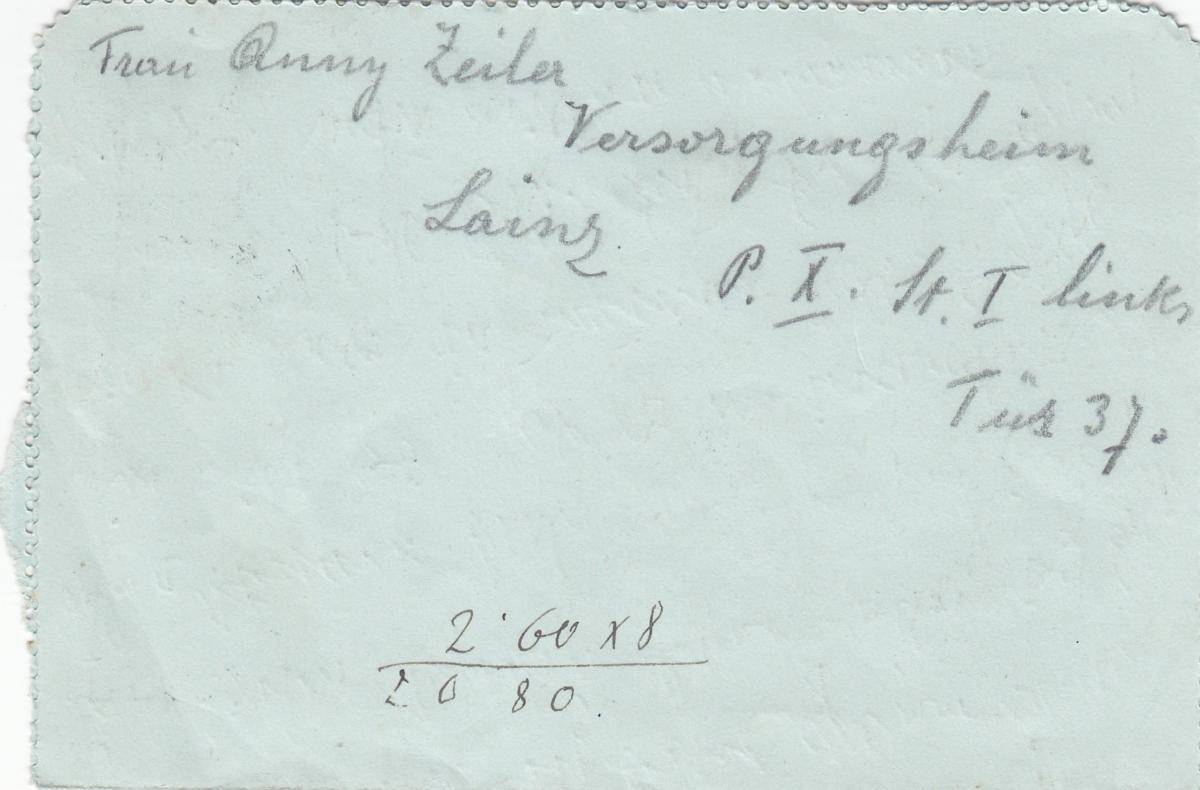 Frau Anny Zeiler
Versorgungsheim
Lainz
P. X. St. I links
Tür 37.
2·60 x 8
20 80.